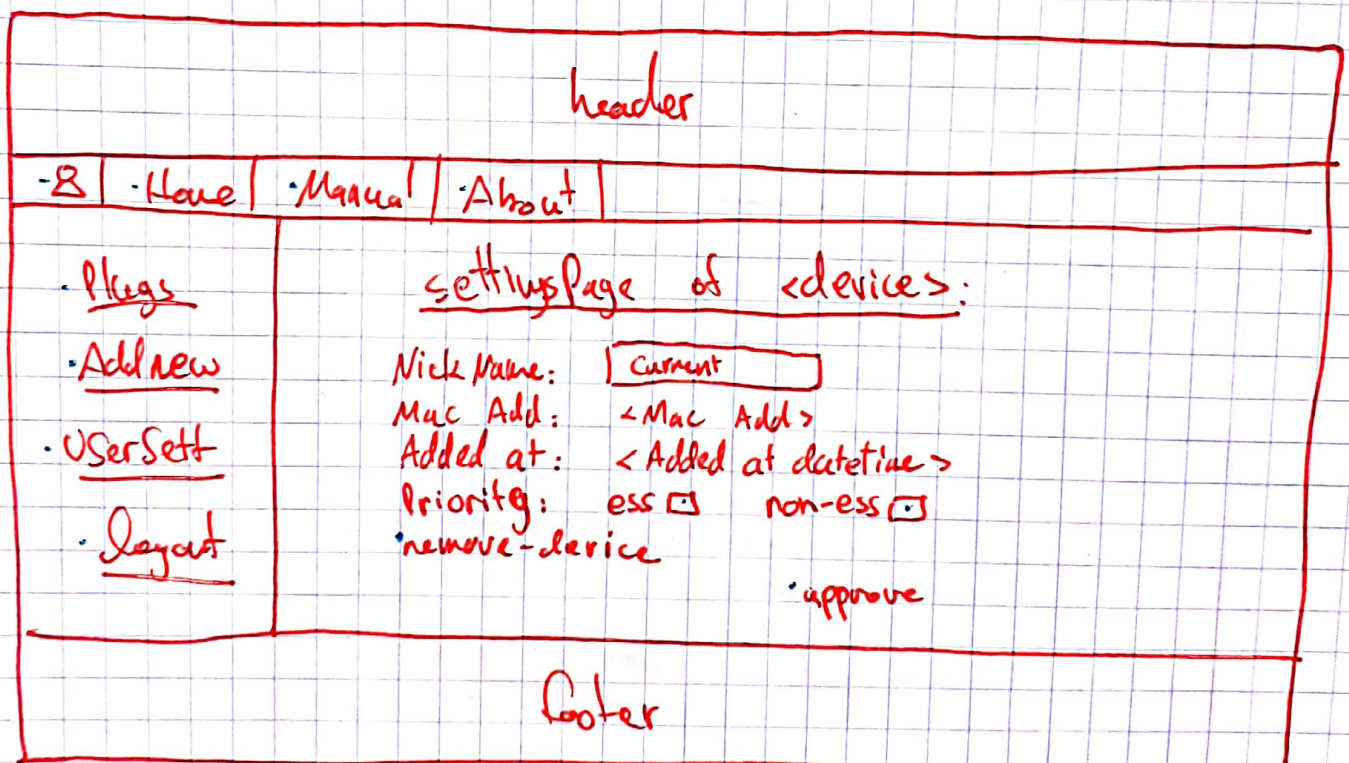 header
·Home ·Manual ·About
·Plugs
·Addnew
·UserSett
·logout
settingsPage of <device>:
NickName: Current
Mac Add: <Mac Add>
Added at: <Added at datetime>
Priority: ess non-ess
·remove-device
·approve
footer